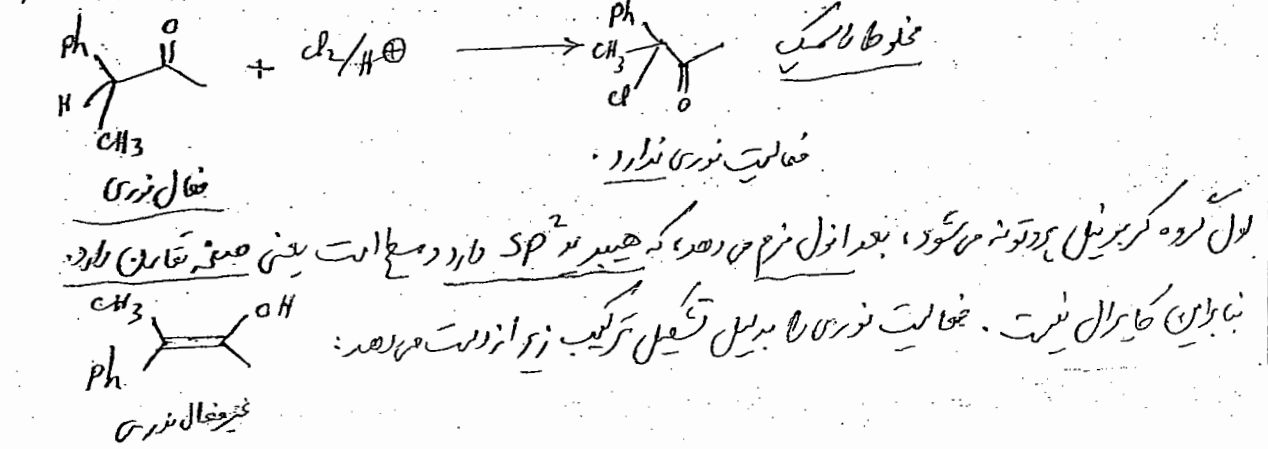 Ph O + Cl2/H⊕ ⟶ Ph CH3 Cl O مخلوط راسمیک
H CH3
فعالیت نوری ندارد.
فعال نوری
اول گروه کربونیل پروتونه می‌شود، بعد انول فرم می‌دهد، که هیبرید sp2 دارد و مسطح است یعنی صفحه تقارن دارد.
بنابراین کایرال نیست. فعالیت نوری را بدلیل تشکیل ترکیب زیر از دست می‌دهد:
CH3 OH
Ph
غیرفعال نوری